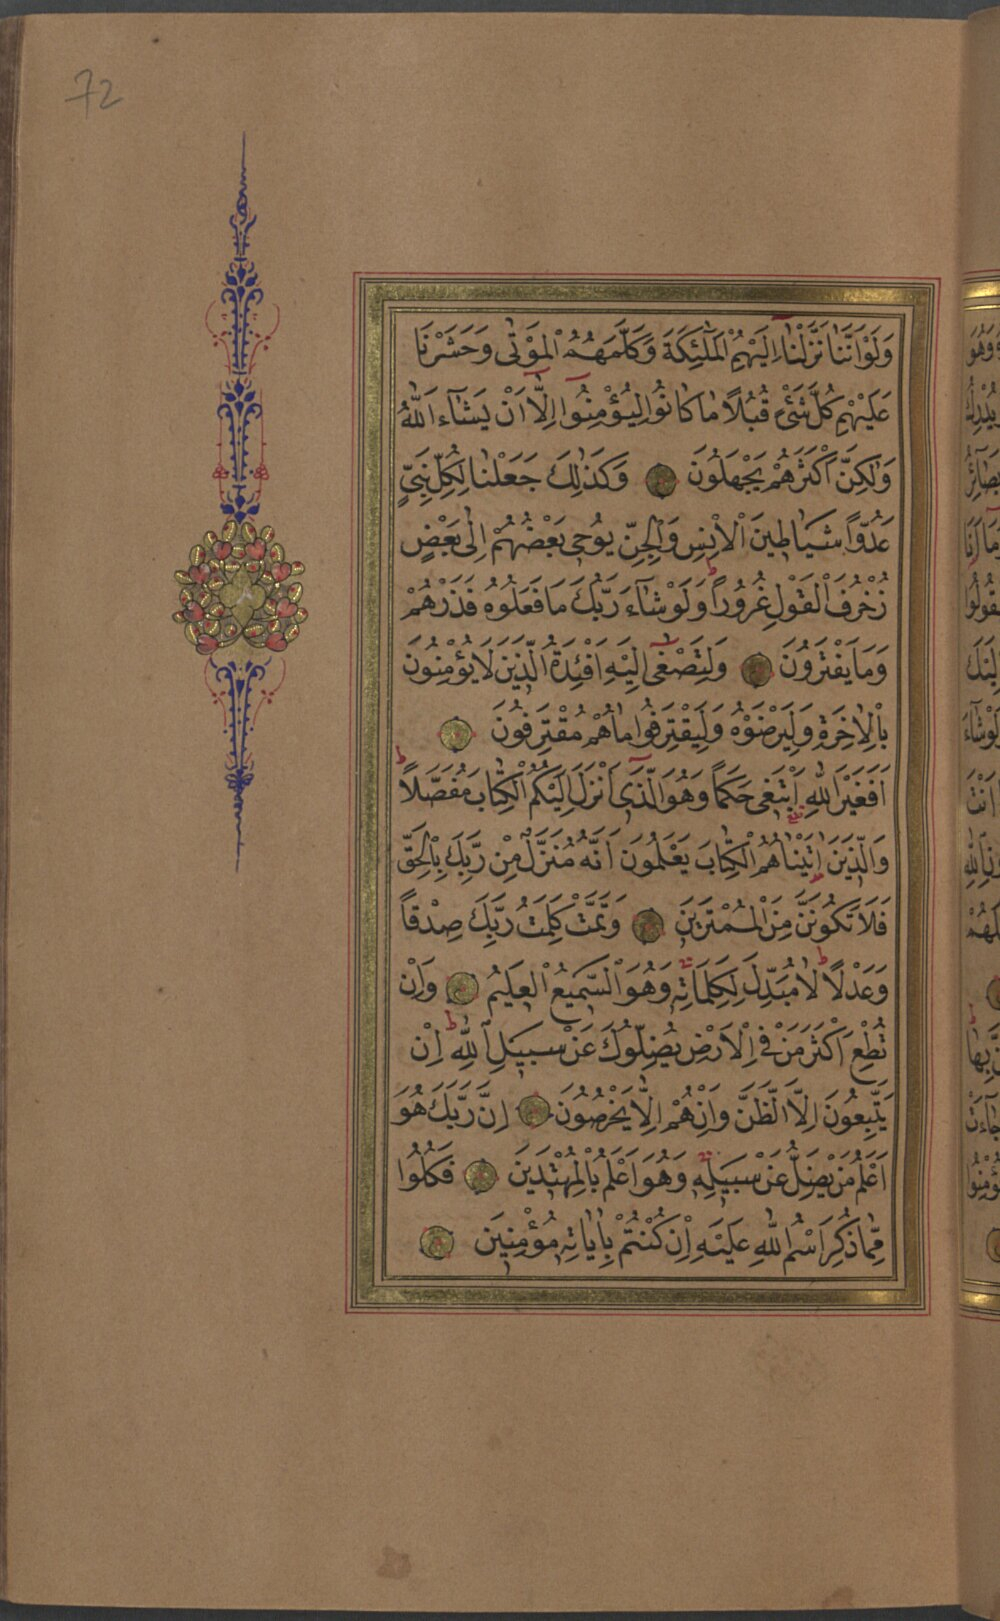 72
وَلَوْ اَنَّنَا نَزَّلْنَٓا اِلَيْهِمُ الْمَلٰٓئِكَةَ وَكَلَّمَهُمُ الْمَوْتٰى وَحَشَرْنَا
عَلَيْهِمْ كُلَّ شَىْءٍ قُبُلًا مَا كَانُوا لِيُؤْمِنُٓوا اِلَّٓا اَنْ يَشَٓاءَ اللّٰهُ
وَلٰكِنَّ اَكْثَرَهُمْ يَجْهَلُونَ وَكَذٰلِكَ جَعَلْنَا لِكُلِّ نَبِىٍّ
عَدُوًّا شَيَاطِينَ الْاِنْسِ وَالْجِنِّ يُوحِى بَعْضُهُمْ اِلٰى بَعْضٍ
زُخْرُفَ الْقَوْلِ غُرُورًا ط وَلَوْ شَٓاءَ رَبُّكَ مَا فَعَلُوهُ فَذَرْهُمْ
وَمَا يَفْتَرُونَ وَلِتَصْغٰٓى اِلَيْهِ اَفْئِدَةُ الَّذِينَ لَا يُؤْمِنُونَ
بِالْاٰخِرَةِ وَلِيَرْضَوْهُ وَلِيَقْتَرِفُوا مَا هُمْ مُقْتَرِفُونَ
اَفَغَيْرَ اللّٰهِ اَبْتَغِى حَكَمًا وَهُوَ الَّذِٓى اَنْزَلَ اِلَيْكُمُ الْكِتَابَ مُفَصَّلًا ط
وَالَّذِينَ اٰتَيْنَاهُمُ الْكِتَابَ يَعْلَمُونَ اَنَّهُ مُنَزَّلٌ مِنْ رَبِّكَ بِالْحَقِّ
فَلَا تَكُونَنَّ مِنَ الْمُمْتَرِينَ وَتَمَّتْ كَلِمَتُ رَبِّكَ صِدْقًا
وَعَدْلًا ط لَا مُبَدِّلَ لِكَلِمَاتِهِ وَهُوَ السَّمِيعُ الْعَلِيمُ وَاِنْ
تُطِعْ اَكْثَرَ مَنْ فِى الْاَرْضِ يُضِلُّوكَ عَنْ سَبِيلِ اللّٰهِ ط اِنْ
يَتَّبِعُونَ اِلَّا الظَّنَّ وَاِنْ هُمْ اِلَّا يَخْرُصُونَ اِنَّ رَبَّكَ هُوَ
اَعْلَمُ مَنْ يَضِلُّ عَنْ سَبِيلِهِ وَهُوَ اَعْلَمُ بِالْمُهْتَدِينَ فَكُلُوا
مِمَّا ذُكِرَ اسْمُ اللّٰهِ عَلَيْهِ اِنْ كُنْتُمْ بِاٰيَاتِهِ مُؤْمِنِينَ